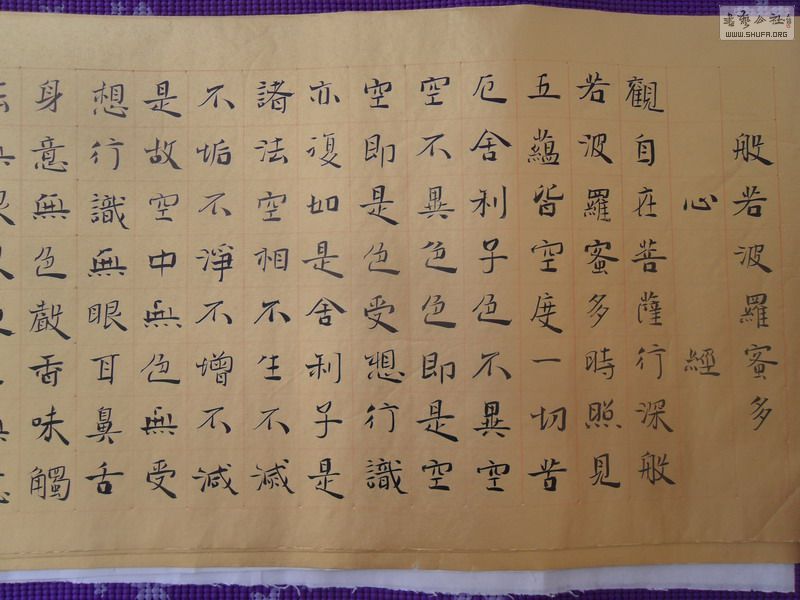 般若波羅蜜多
心經
觀自在菩薩行深般
若波羅蜜多時照見
五蘊皆空度一切苦
厄舍利子色不異空
空不異色色即是空
空即是色受想行識
亦復如是舍利子是
諸法空相不生不滅
不垢不淨不增不減
是故空中無色無受
想行識無眼耳鼻舌
身意無色聲香味觸
WWW.SHUFA.ORG